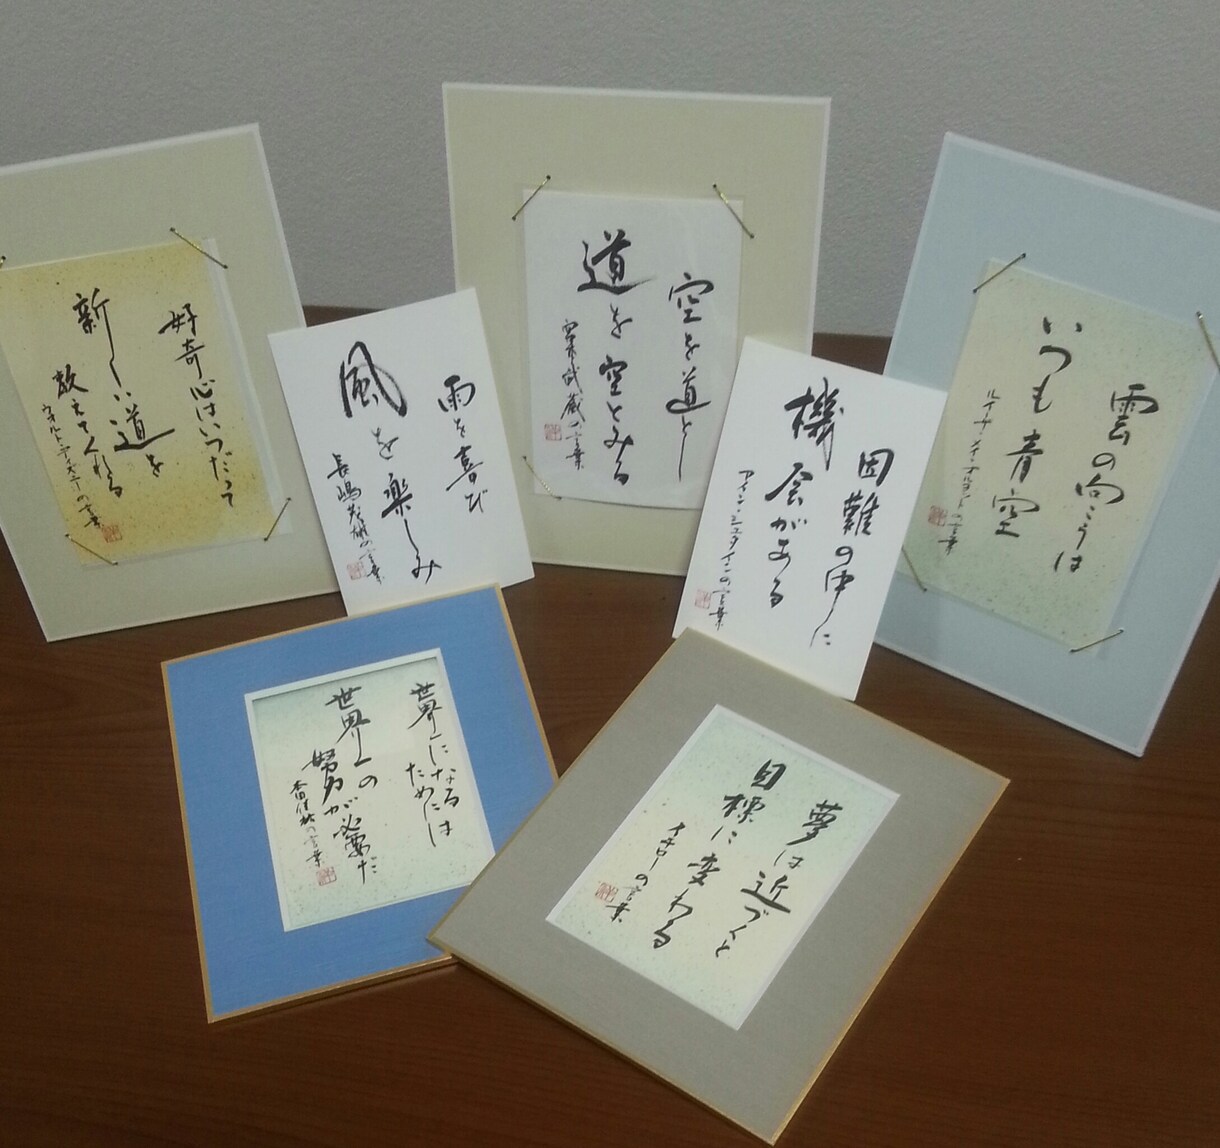 好奇心はいつだって
新しい道を
教えてくれる
ウオルト・ディズニーの言葉
雨を喜び
風を楽しみ
長嶋茂雄の言葉
空を道とし
道を空とみる
宮本武蔵の言葉
困難の中に
機会がある
アインシュタインの言葉
雲の向こうは
いつも青空
ルイーザ・メイ・オルコットの言葉
世界一になる
ためには
世界一の
努力が必要だ
本田佳祐の言葉
夢は近づくと
目標に変わる
イチローの言葉